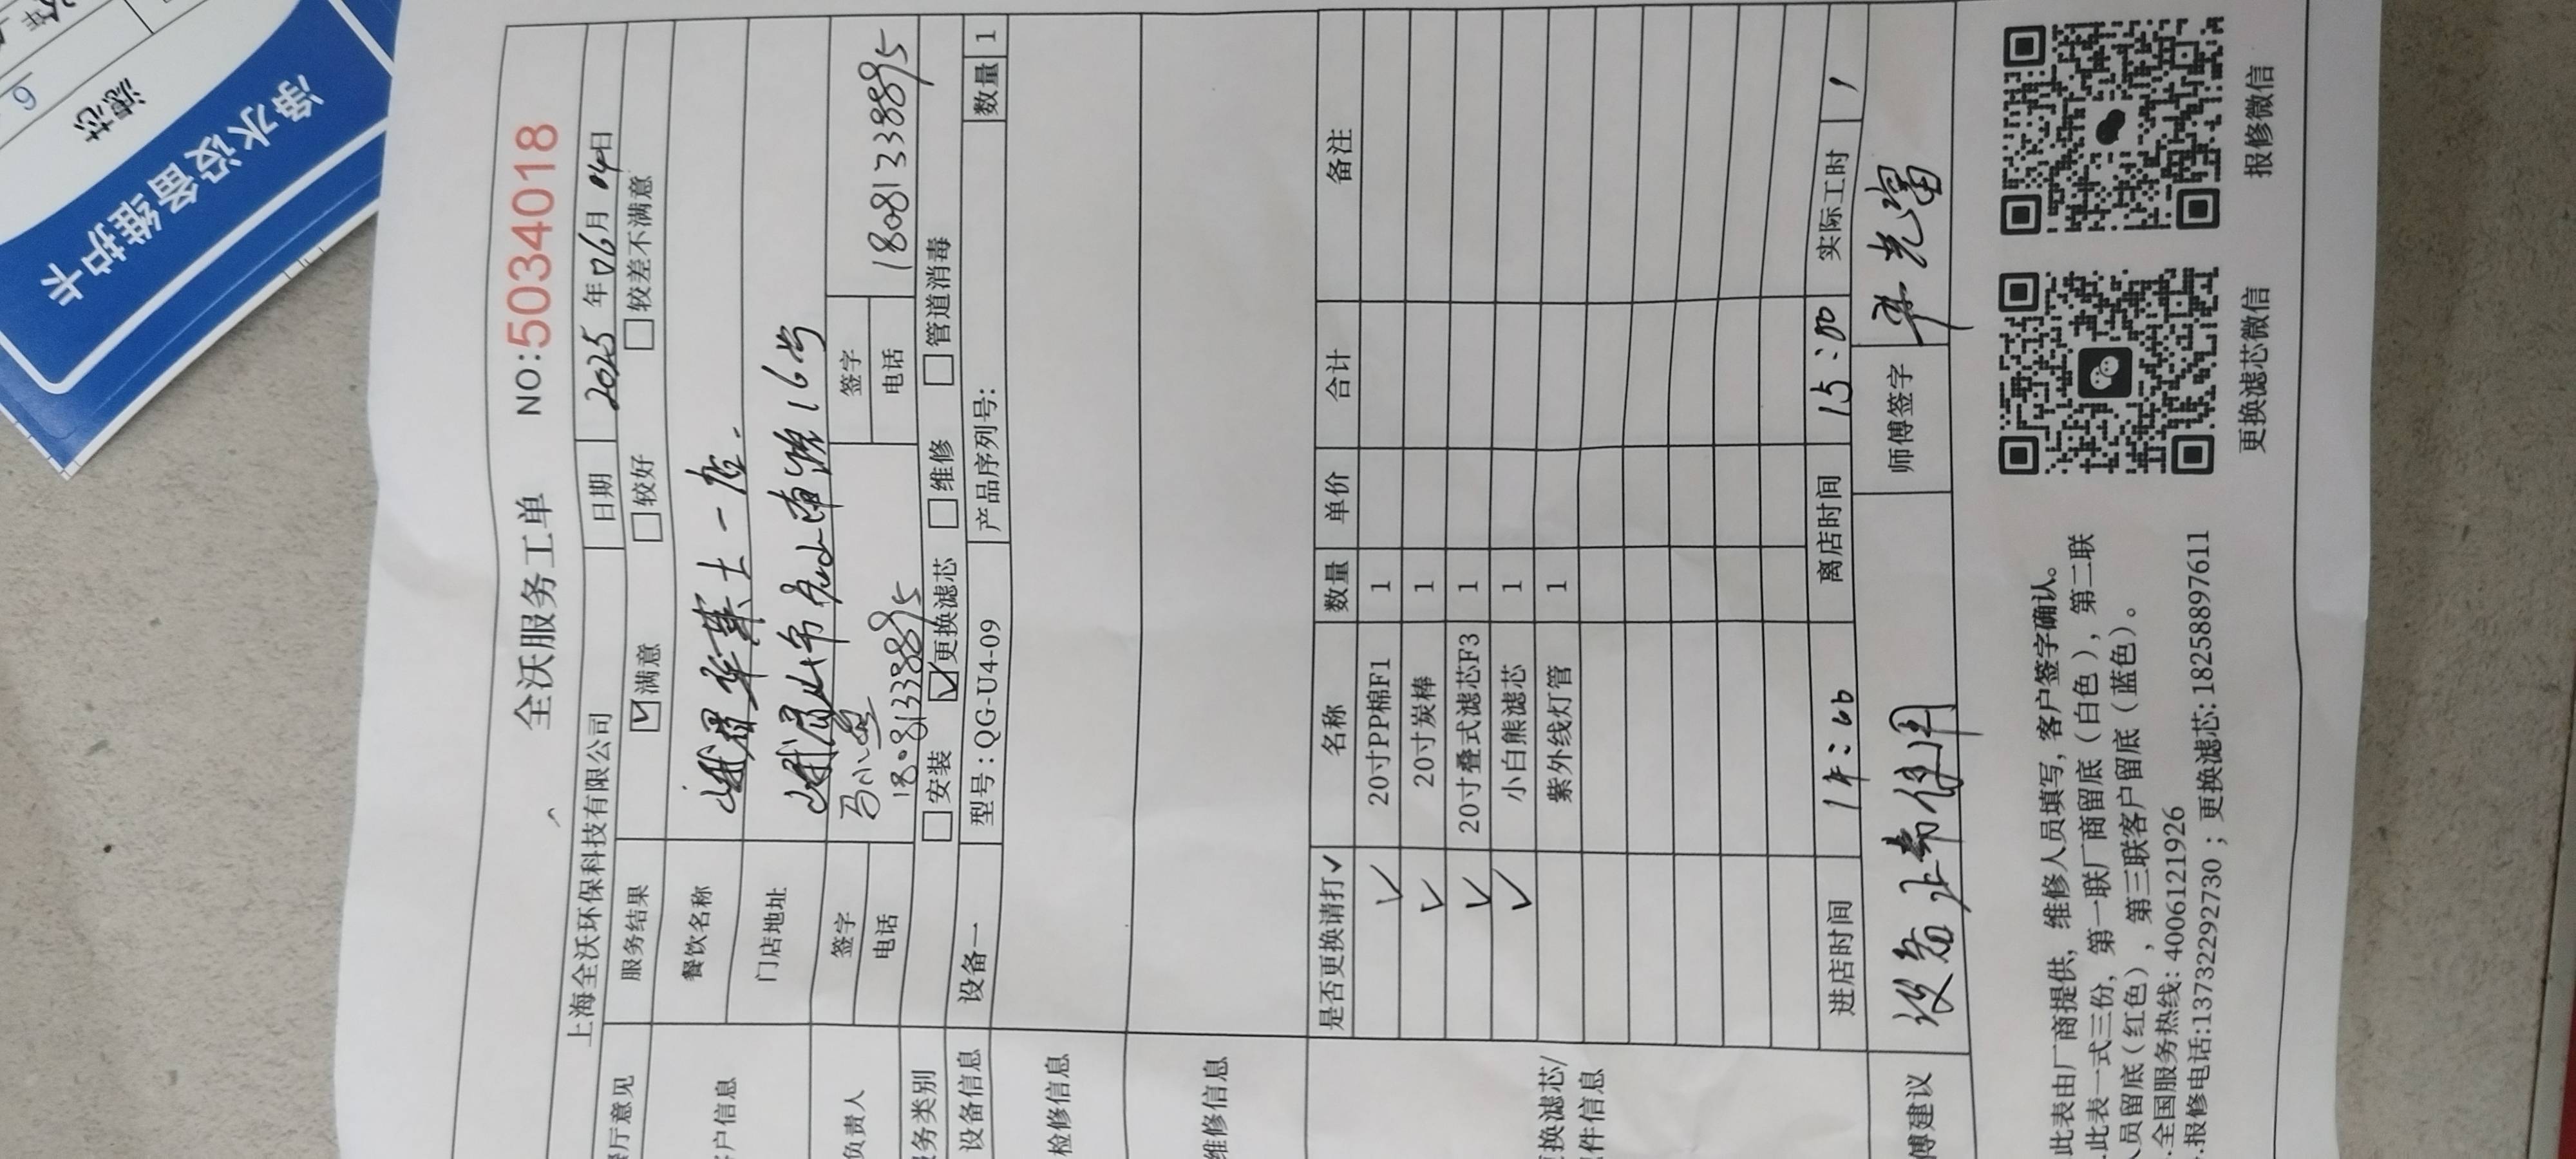 净水设备维护卡
滤芯
6
全沃服务工单 NO:5034018
上海全沃环保科技有限公司 日期 2025年06月04日
厅意见 服务结果 ☑满意 □较好 □较差不满意
户信息 餐饮名称 峨眉华莱士一店.
门店地址 峨眉山市名山南路16号
负责人 签字 签字
电话 18081338895 电话 18081338895
务类别 □安装 ☑更换滤芯 □维修 □管道消毒
设备信息 设备一 型号:QG-U4-09 产品序列号: 数量 1
检修信息
维修信息
换滤芯/
件信息
是否更换请打✓ 名称 数量 单价 合计 备注
✓ 20寸PP棉F1 1
✓ 20寸炭棒 1
✓ 20寸叠式滤芯F3 1
✓ 小白熊滤芯 1
紫外线灯管 1
进店时间 离店时间 15:00 实际工时 1
傅建议 设备正常使用 师傅签字
此表由厂商提供,维修人员填写,客户签字确认。
.此表一式三份,第一联厂商留底(白色),第二联
员留底(红色),第三联客户留底(蓝色)。
.全国服务热线:4006121926
.报修电话:13732292730;更换滤芯:18258897611
更换滤芯微信 报修微信